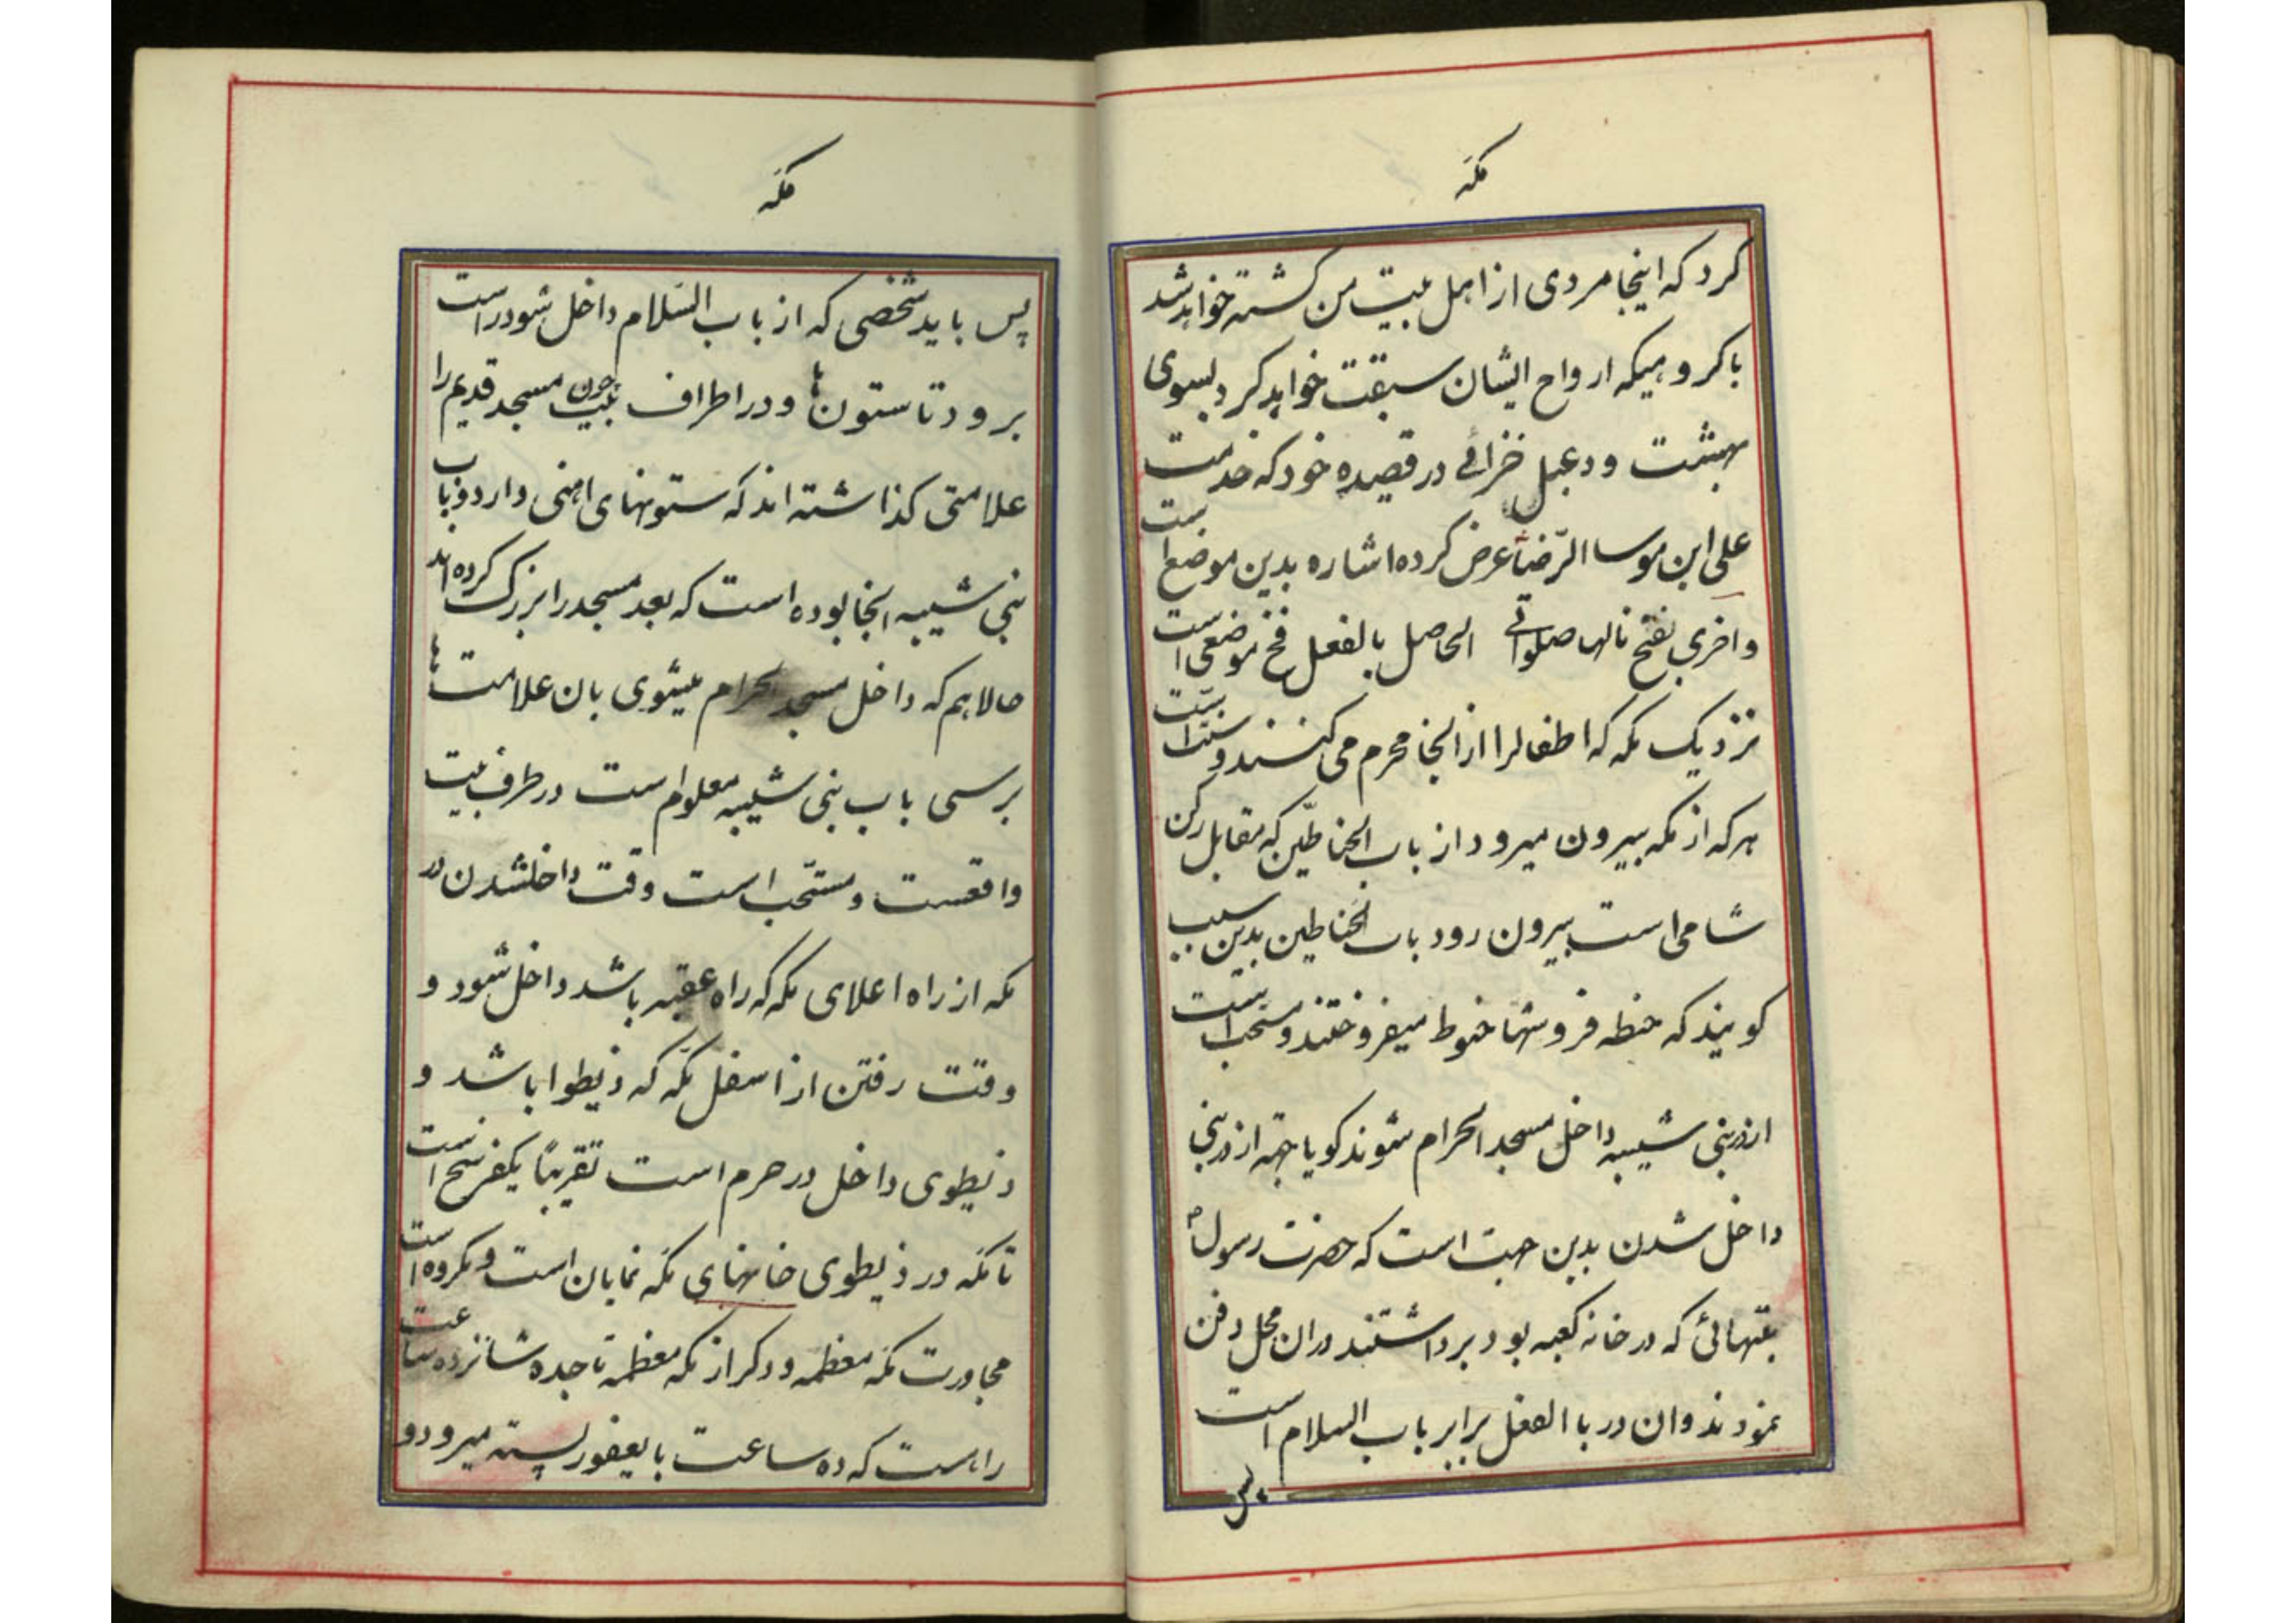 مکه
کرد که اینجا مردی از اهل بیت من کشته خواهد شد
با کروهیکه ارواح ایشان سبقت خواهد کرد بسوی
بهشت و دعبل خزاعی در قصیده خود که خدمت
علی ابن موسا الرّضا عرض کرده اشاره بدین موضع است
و اخری بفخ نالها صلواتی الحاصل بالفعل فخ موضعی است
نزدیک مکه که اطفالرا از انجا محرم می کنند و سنت است
هرکه از مکه بیرون میرود از باب الحناطین که مقابل رکن
شامی است بیرون رود باب الحناطین بدین سبب
کویند که حنطه فروشها حنوط میفروختند و مستحب است
از در بنی شیبه داخل مسجد الحرام شوند کویا جهة از در بنی
داخل شدن بدین جهت است که حضرت رسول ص
بتهائی که در خانه کعبه بود برداشتند دران محل دفن
نمودند و ان در باالفعل برابر باب السلام است
پس
مکّه
پس باید شخصی که از باب السّلام داخل شود راست
برود تا ستون ها و در اطراف بیت چون مسجد قدیم را
علامتی کذاشته اند که ستونهای اهنی دارد و باب
بنی شیبه انجا بوده است که بعد مسجد را بزرک کرده اند
حالا هم که داخل مسجد الحرام میشوی بان علامت ها
برسی باب بنی شیبه معلوم است در طرف بیت
واقعست و مستحب است وقت داخلشدن در
مکه از راه اعلای مکه که راه عقبه باشد داخل شود و
وقت رفتن از اسفل مکّه که ذیطوا باشد و
ذیطوی داخل در حرم است تقریبًا یکفرسخ است
تا مکّه در ذیطوی خانهای مکّه نمایان است و مکروه است
مجاورت مکّه معظمه و دکر از مکه معظمه تا جده شانزده ساعت
راهست که ده ساعت با یعفور بسته میرود و